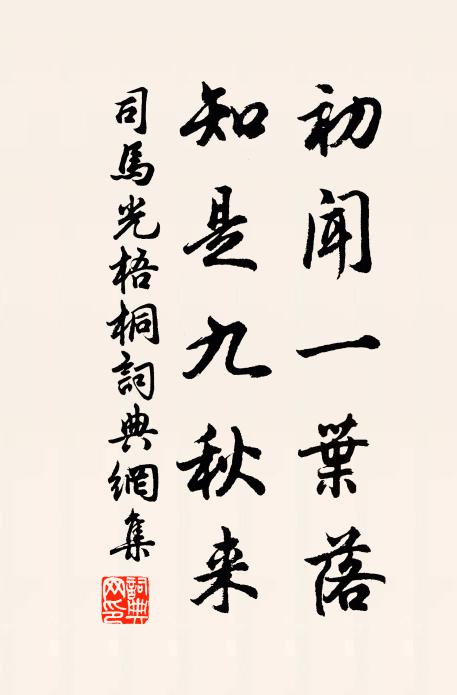 初聞一葉落
知是九秋来
司馬光梧桐詞典網集
詞典网印